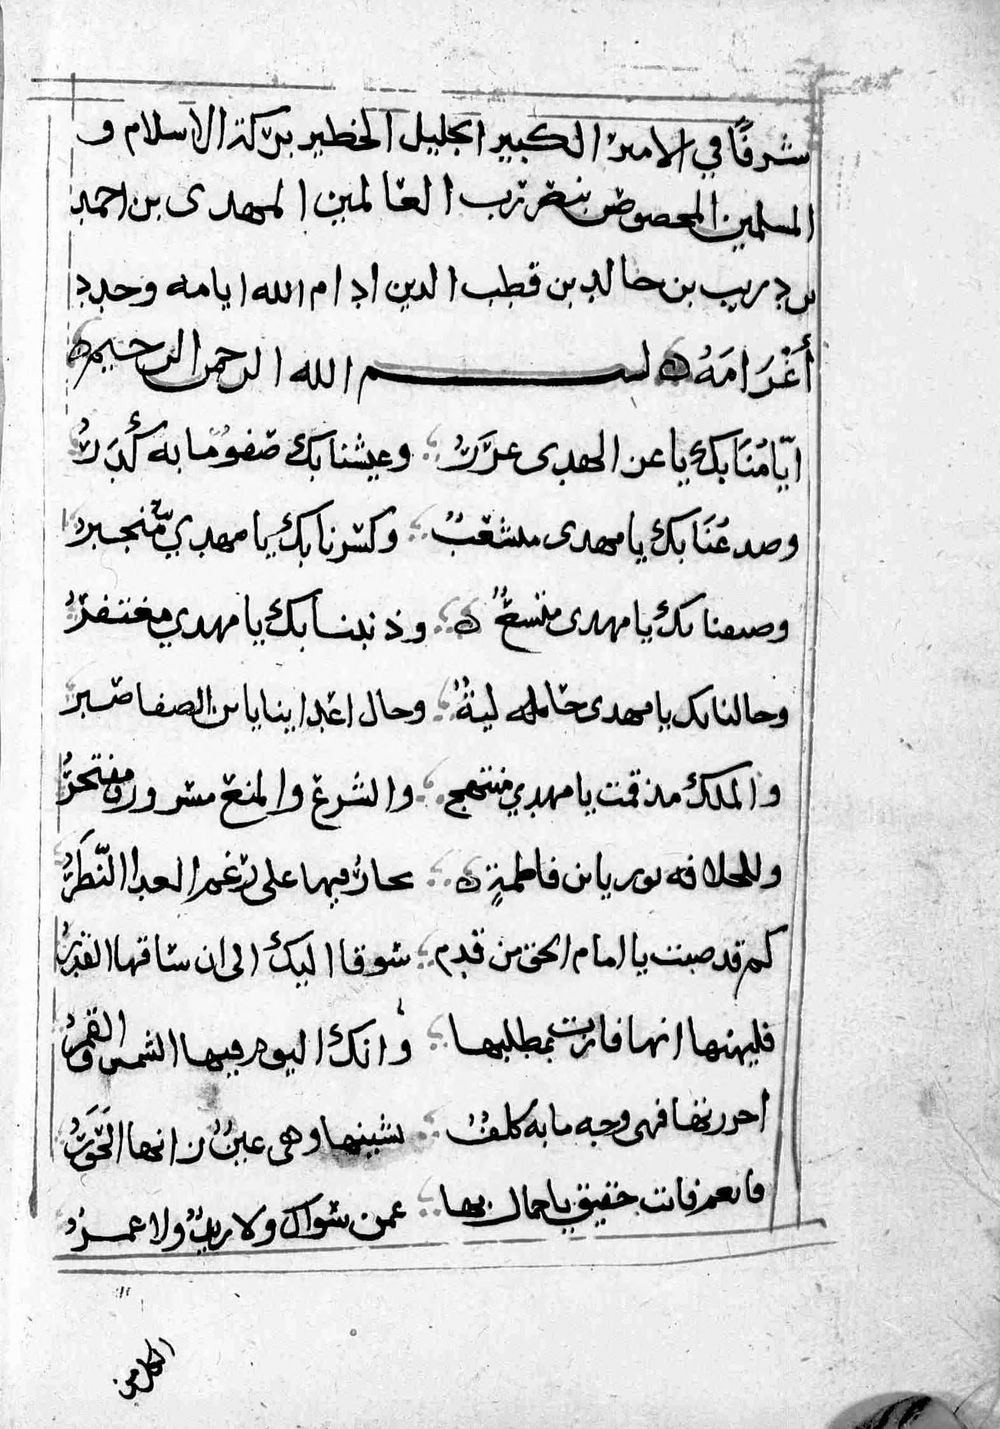 شرفًا في الامير الكبير الجليل الخطير بركة الاسلام و
المسلمين المخصوص بنصر رب العالمين المهدى بن احمد
بن دريب بن خالد بن قطب الدين ادام الله ايامه وحدد
أَغْرَامَهُ بسم الله الرحمن الرحيم
ايّامُنَا بكَ يا عز الهدى غرَرُ وعيشنا بك صفو ما به كَدَرُ
وصدعُنَا بك يا مهدى منشعبُ وكسرنا بك يا مهدي منجبر
وضيقنا بك يا مهدى متسعُ وذنبنا بك يا مهدي مغتفرُ
وحالنا بك يا مهدى حاليةُ وحال اعداينايا بن الصفا صبر
والملك مذ قمت يا مهدي مبتهج والشرع والمنع مسرور ومفتخرُ
وللخلافه نور يا بن فاطمةٍ يحار فيها على رغم العدا النّظَرُ
كم قد صبت يا امام الحق من قدم شوقا اليك الى ان ساقها القدرُ
فليهنها انها فازت بمطلبها وانك اليوم فيها الشمس والقمرُ
احررتها فهى وجه ما به كلفُ يشينها وهى عينُ زانها الحَوَرُ
فانعم فانت حقيق يا جمال بها عمن سواك ولا ريبُ ولا غمزُ